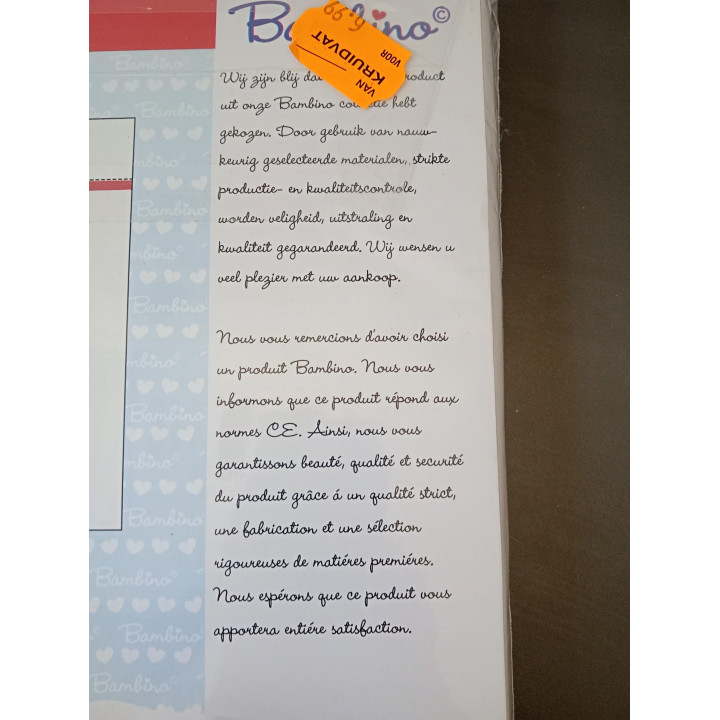 Bambino©
6.99
VAN
KRUIDVAT
VOOR
Wij zijn blij product
uit onze Bambino hebt
gekozen. Door gebruik van nauw-
keurig geselecteerde materialen, strikte
productie- en kwaliteitscontrole,
worden veligheid, uitstraling en
kwaliteit gegarandeerd. Wij wensen u
veel plezier met uw aankoop.
Nous vous remercions d'avoir choisi
un produit Bambino. Nous vous
informons que ce produit répond aux
normes CE. Ainsi, nous vous
garantissons beauté, qualité et securité
du produit grâce á un qualité strict,
une fabrication et une sélection
rigoureuses de matiéres premiéres.
Nous espérons que ce produit vous
apportera entiére satisfaction.
Bambino©
Bambino©
Bambino©
Bambino©
Bambino©
Bambino©
Bambino©
Bambino©